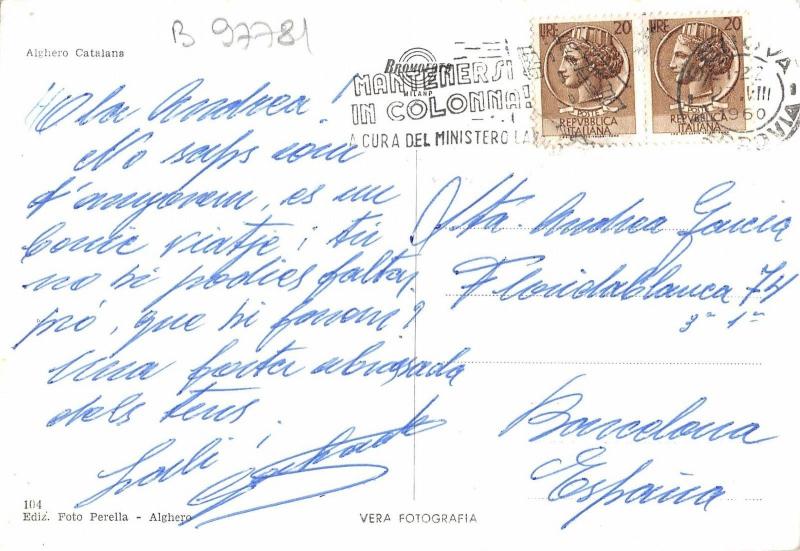 B 97781
Alghero Catalana
Bromofoto
MILANO
MANTENERSI
IN COLONNA!
A CURA DEL MINISTERO LA
LIRE 20
POSTE
REPVBBLICA
ITALIANA
LIRE 20
POSTE
REPVBBLICA
ITALIANA
22
VIII
1960
FERROVIA
Hola Andrea!
No saps com
t'anyorem, es un
bonic viatje i tu
no hi podies faltar,
pró, que hi farem?
Una forta abrasada
dels teus
Loli i
Srta. Andrea Garcia
Floridablanca 74
3º 1ª
Barcelona
España
104
Ediz. Foto Perella - Alghero
VERA FOTOGRAFIA